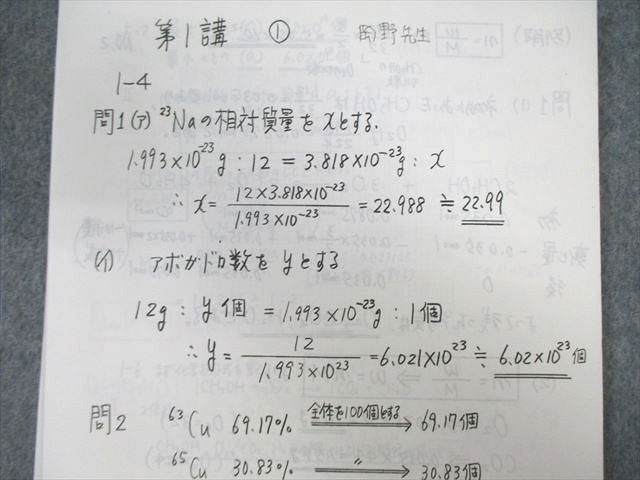 第1講 ① 岡野先生
1-4
問1(ア) ²³Naの相対質量をxとする.
1.993×10⁻²³g : 12 = 3.818×10⁻²³g : x
∴ x= 12×3.818×10⁻²³ / 1.993×10⁻²³ = 22.988 ≒ 22.99
(イ) アボガドロ数をyとする
12g : y個 = 1.993×10⁻²³g : 1個
∴ y= 12 / 1.993×10²³ =6.021×10²³ ≒ 6.02×10²³個
問2 ⁶³Cu 69.17% 全体を100個とする → 69.17個
⁶⁵Cu 30.83% 〃 → 30.83個